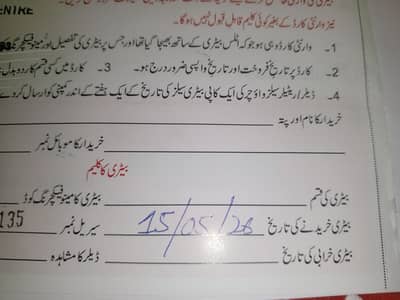 ENTRE
نیز وارنٹی کارڈ کے بغیر کوئی کلیم قابل قبول نہیں ہوگا۔
1- وارنٹی کارڈ وہی ہو جو کہ اٹلس بیٹری کے ساتھ بھیجا گیا تھا اور جس پر بیٹری کی تفصیل اور مینوفیکچرنگ
2- کارڈ پر تاریخ فروخت اور تاریخ واپسی ضرور درج ہو۔ 3- کارڈ میں کسی قسم کا ردوبدل
4- ڈیلر/ریٹیلر سیلز واؤچر کی ایک کاپی بیٹری سیلز کی تاریخ کے ایک ہفتے کے اندر کمپنی کو ارسال کر دے
خریدار کا نام اور پتہ
خریدار کا موبائل نمبر
بیٹری کا کلیم
بیٹری کی قسم بیٹری کا مینوفیکچرنگ کوڈ
بیٹری خریدنے کی تاریخ 15/05/28 سیریل نمبر 135
بیٹری خرابی کی تاریخ ڈیلر کا مشاہدہ